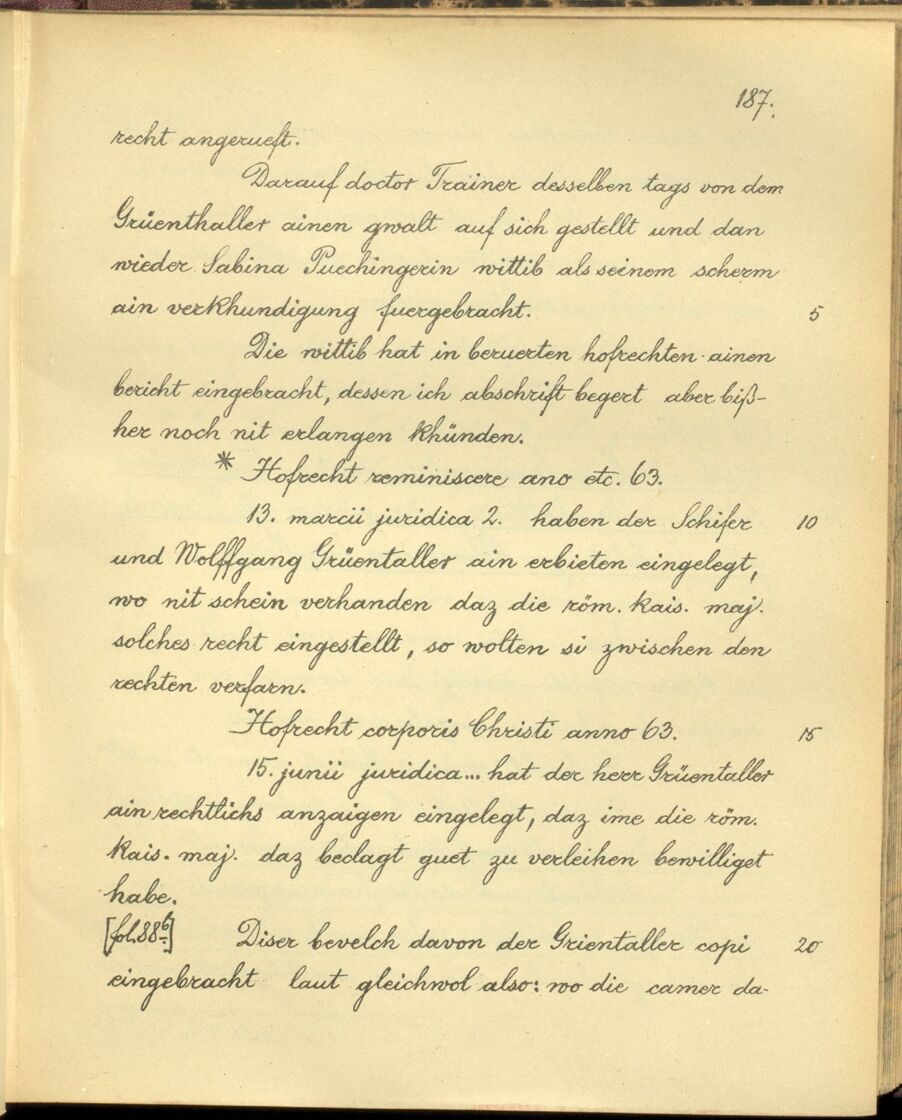 187.
recht angerueft.
Darauf doctor Trainer desselben tags von dem
Grüenthaller ainen gwalt auf sich gestellt und dan
wieder Sabina Puechingerin wittib als seinem scherm
ain verkhundigung fuergebracht. 5
Die wittib hat in beruerten hofrechten ainen
bericht eingebracht, dessen ich abschrift begert aber biß-
her noch nit erlangen khünden.
* Hofrecht reminiscere ano etc. 63.
13. marcii juridica 2. haben der Schifer 10
und Wolffgang Grüentaller ain erbieten eingelegt,
wo nit schein verhanden daz die röm. kais. maj.
solches recht eingestellt, so wolten si zwischen den
rechten verfarn.
Hofrecht corporis Christi anno 63. 15
15. junii juridica... hat der herr Grüentaller
ain rechtlichs anzaigen eingelegt, daz ime die röm.
kais. maj. daz beclagt guet zu verleihen bewilliget
habe.
[fol. 88b] Diser bevelch davon der Grientaller copi 20
eingebracht laut gleichwol also: wo die camer da-